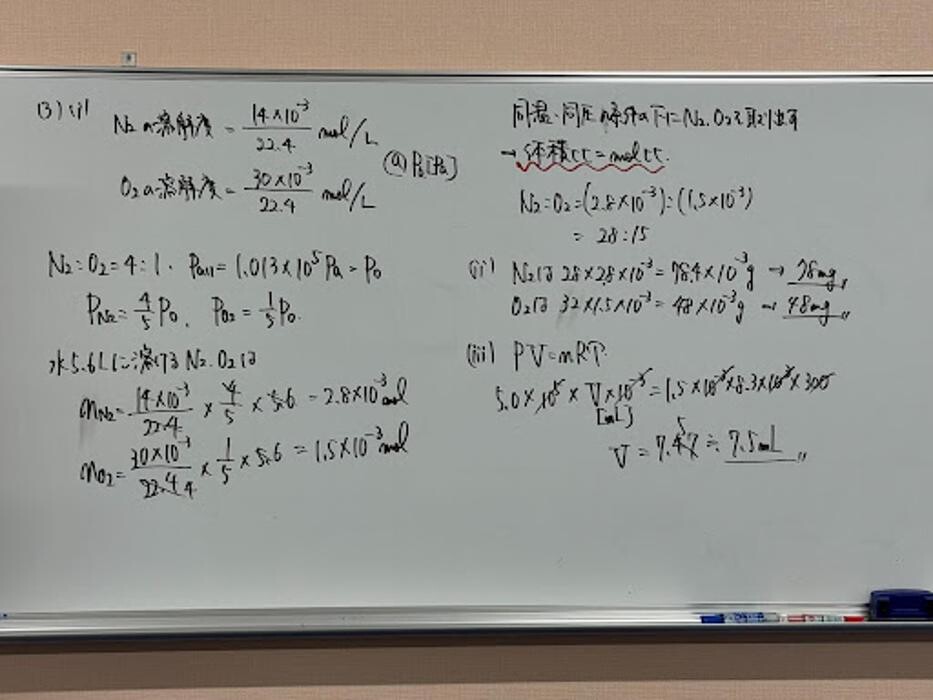 (3)(i)
N₂の溶解度 = 14×10⁻³/22.4 mol/L
O₂の溶解度 = 30×10⁻³/22.4 mol/L
@P₀[Pa]
N₂:O₂=4:1. Pall=1.013×10⁵Pa=P₀
PN₂=4/5P₀, PO₂=1/5P₀.
水5.6Lに溶けるN₂.O₂は
nN₂=14×10⁻³/22.4×4/5×5.6=2.8×10⁻³mol
nO₂=30×10⁻³/22.4×1/5×5.6=1.5×10⁻³mol
同温・同圧条件の下にN₂.O₂を取り出す
→体積比=mol比.
N₂:O₂=(2.8×10⁻³):(1.5×10⁻³)
=28:15
(ii) N₂は28×2.8×10⁻³=78.4×10⁻³g→78mg
O₂は32×1.5×10⁻³=48×10⁻³g→48mg
(iii) PV=nRT.
5.0×10⁵×V×10⁻³=1.5×10⁻³×8.3×10³×300
[mL]
V=7.47≒7.5mL